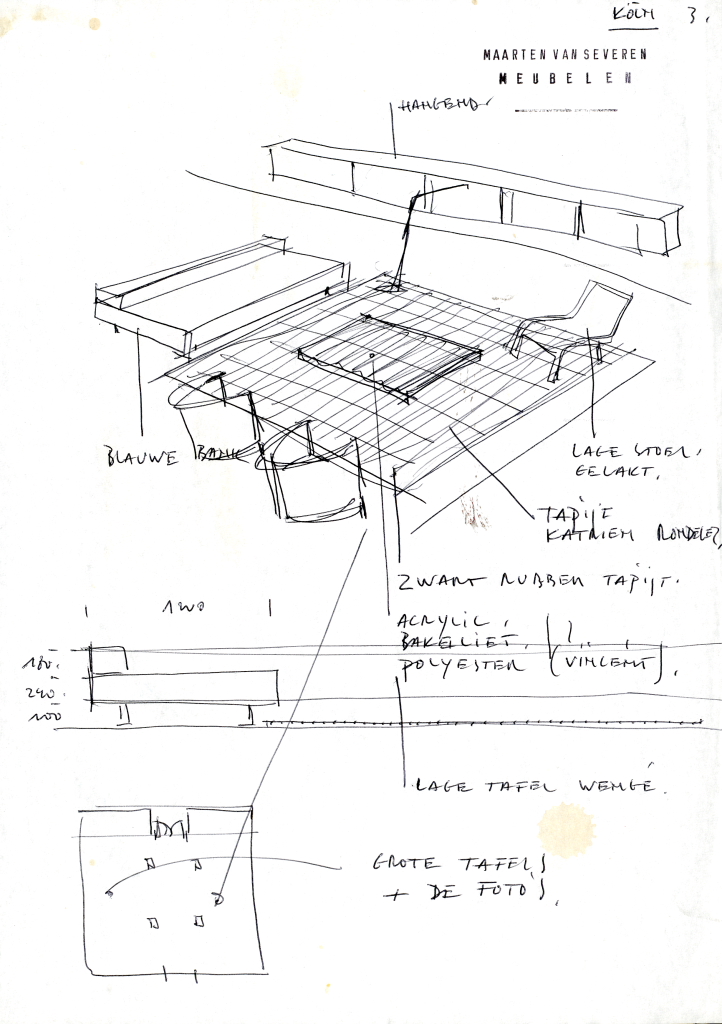 KÖLN 3.
MAARTEN VAN SEVEREN
MEUBELEN
HANGEND
BLAUWE BANK
LAGE STOEL,
GELAKT.
TAPIJT
KATRIEN
ZWART RUBBER TAPIJT.
120
ACRYLIC,
BAKELIET,
POLYESTER (VINCENT).
180.
240.
100
LAGE TAFEL WENGÉ.
GROTE TAFELS
+ DE FOTO'S,